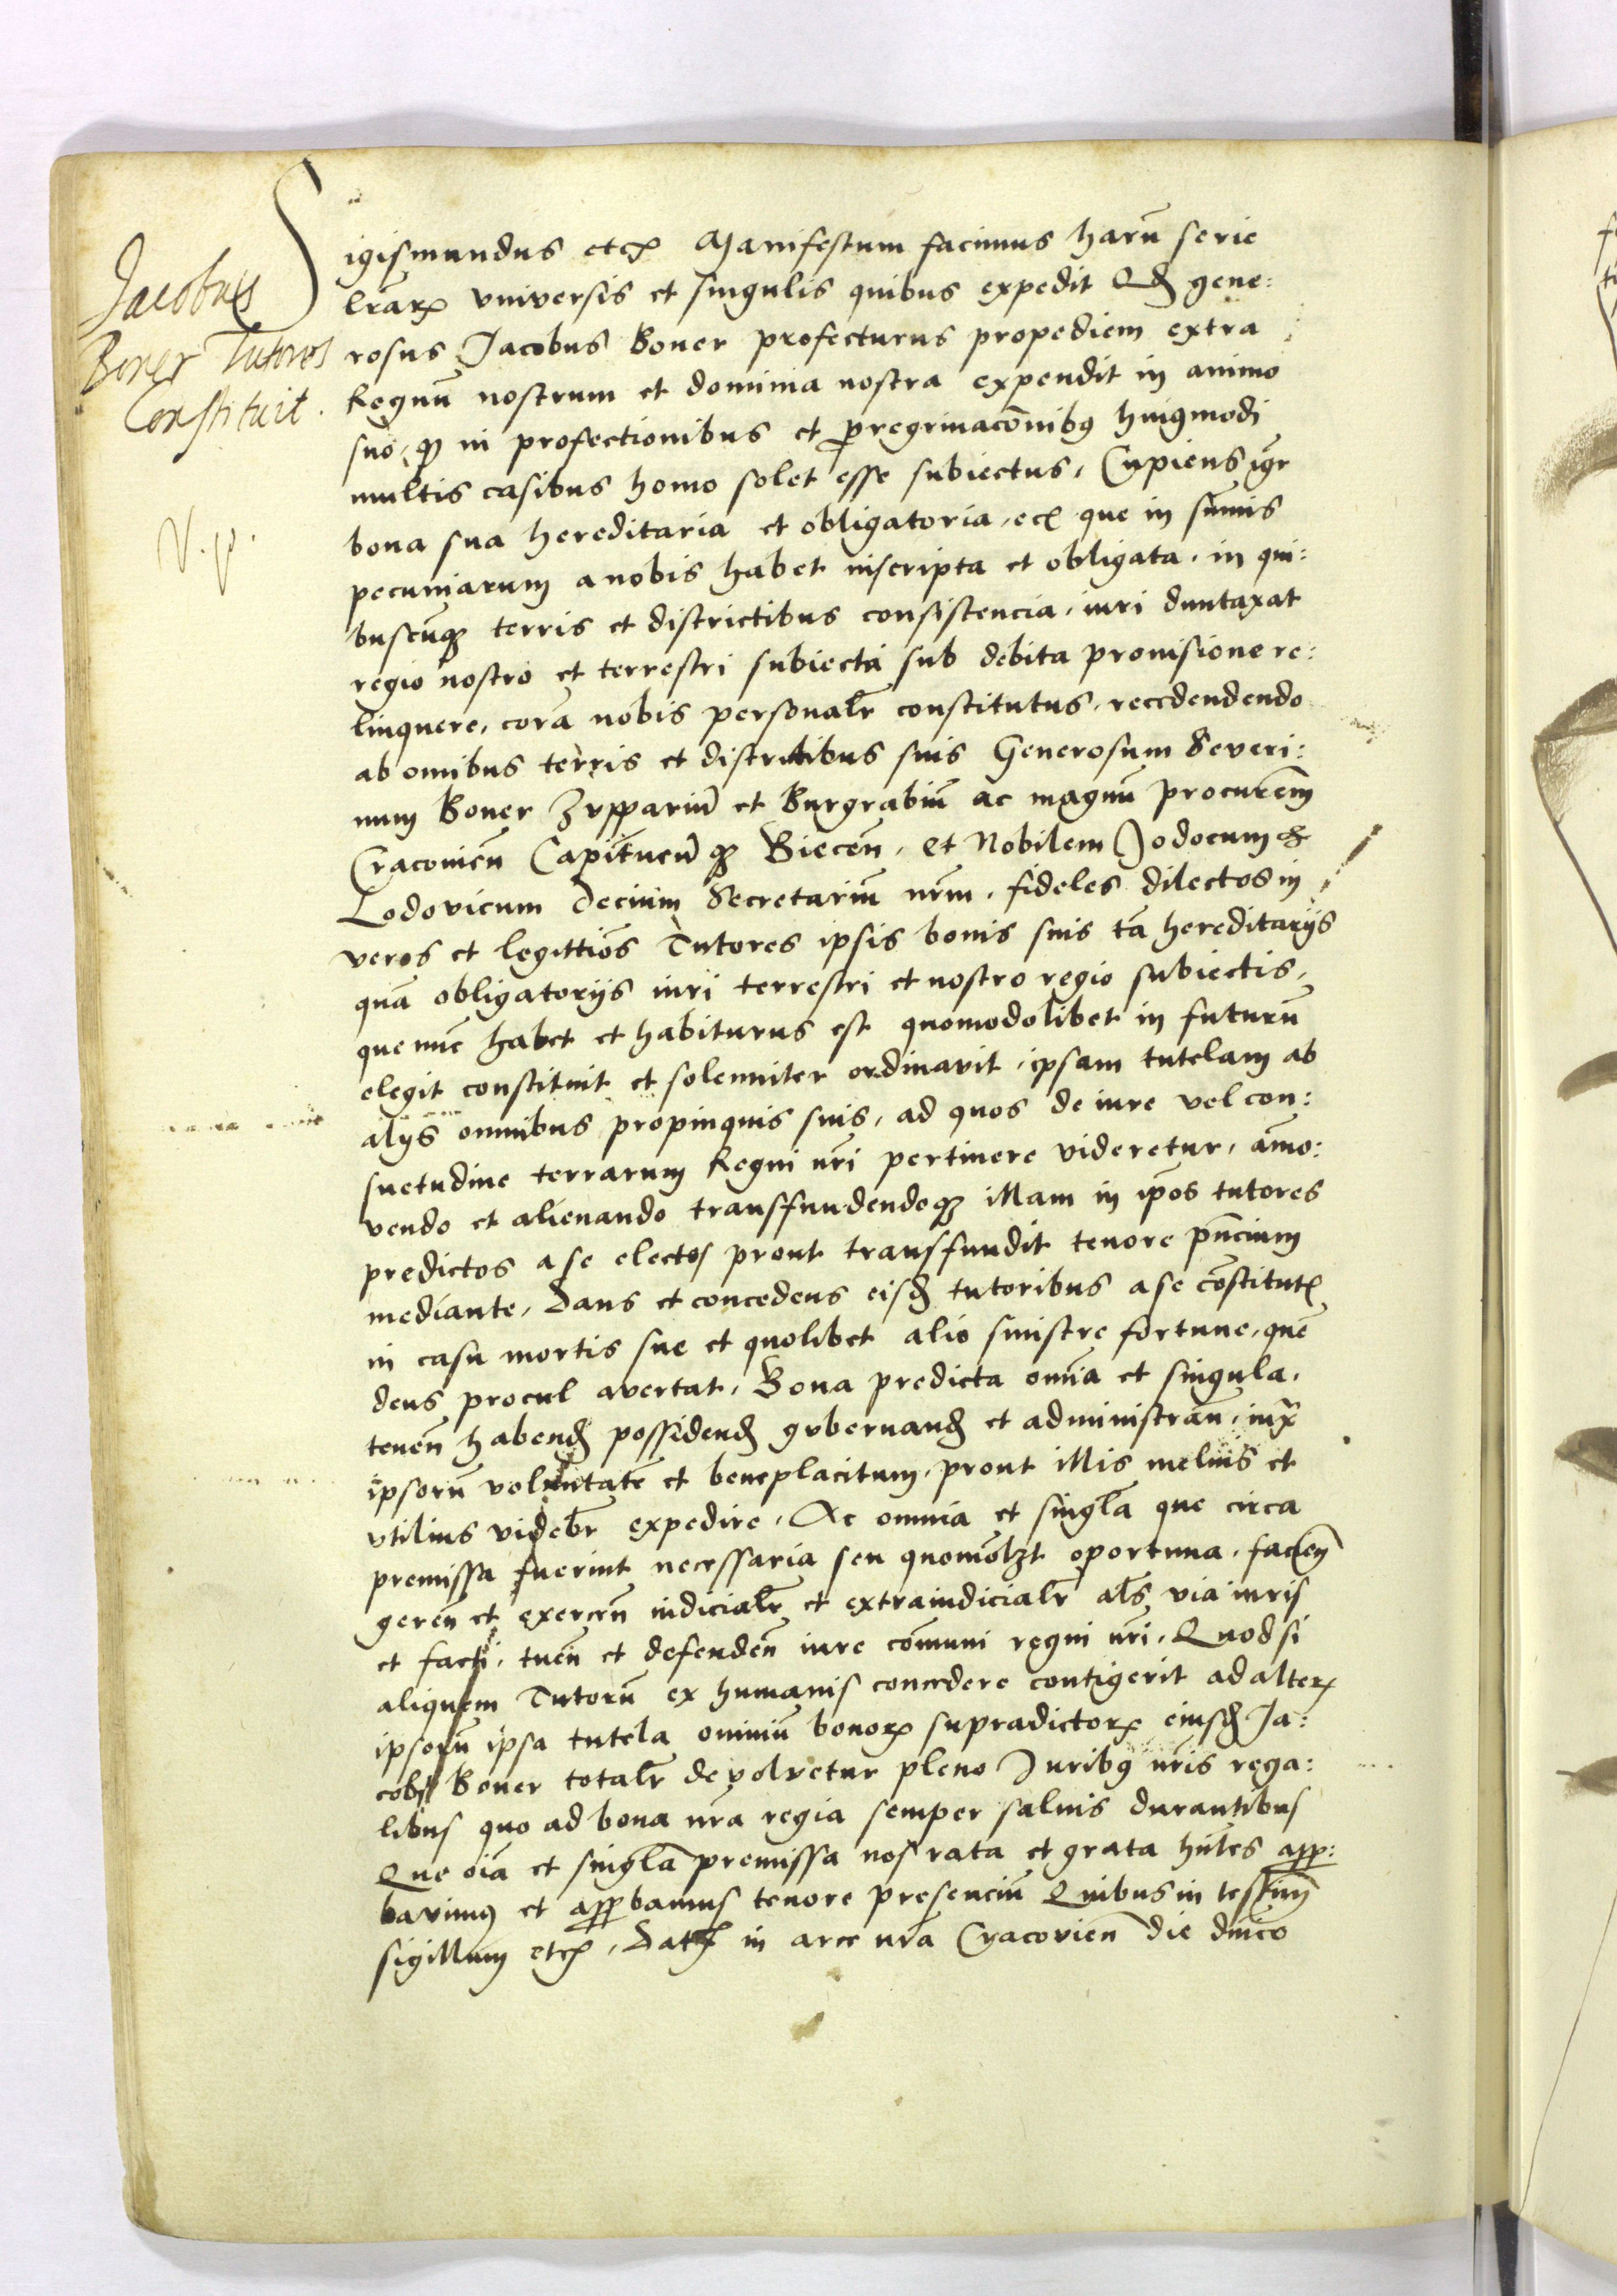 Jacobus
Boner Tutores
Constituit.
V. p.
Sigismundus etc Manifestum facimus harū serie
lrarꝝ vniversis et singulis quibus expedit Qđ gene:
rosus Jacobus Boner profecturus propediem extra
Regnū nostrum et dominia nostra expendit in animo
suo, ꝙ in profectionibus et peregrinacōnibꝯ huiꝯmodi
multis casibus homo solet esse subiectus, Cupiens igr
bona sua hereditaria et obligatoria, ecꝫ que in sūmis
pecuniarum a nobis habet inscripta et obligata, in qui:
buscūqꝫ terris et districtibus consistencia, iuri duntaxat
regio nostro et terrestri subiecta sub debita prouisione re:
linquere, corā nobis personalr constitutus, recedendendo
ab omnibus terris et districtibus suis Generosum Severi:
num Boner Zuppariū et Burgrabiū ac magnū procurem
Cracovieñ Capitneū qꝫ Bieceñ, et Nobilem Jodocum
Lodovicum Decium Secretariū nrm, fideles dilectos in
veros et legittīos Tutores ipsis bonis suis tā hereditarijs
quā obligatorijs iuri terrestri et nostro regio subiectis,
que nūc habet et habiturus est quomodolibet in futurū
elegit constituit et solenniter ordinavit, ipsam tutelam ab
alijs omnibus propinquis suis, ad quos de iure vel con:
suetudine terrarum Regni nri pertinere videretur, āmo:
vendo et alienando transfundendoqꝫ illam in ipos tutores
predictos a se electos prout transfundit tenore pncium
mediante, Dans et concedens eisđ tutoribus a se cōstitutꝭ
in casu mortis sue et quolibet alio sinistre fortune, quē
deus procul avertat, Bona predicta omīa et singula,
teneñ habenđ possidenđ gubernanđ et administrañ, iuxa
ipsorū voluntatē et beneplacitum, prout illis melius et
vtilius videbr expedire, Ac omnia et singla que circa
premissa fuerint necessaria seu quomolꝫt oportuna, facieñ
gereñ et exerceñ iudicialr et extraiudicialr als via iuris
et facti, tueñ et defendeñ iure cōmuni regni nri, Quod si
aliquem Tutorū ex humanis concedere contigerit ad alterꝝ
ipsorū ipsa tutela omniū bonorꝝ supradictorꝝ eiusđ Ja:
cobi Boner totalr devolvetur pleno Juribꝯ nris rega:
libus quo ad bona nra regia semper salvis durantibus
Que oīa et singla premissa nos rata et grata hntes app:
bavimꝯ et appbamus tenore presenciū Quibus in testim
sigillum etc, Datꝫ in arce nra Cracovieñ die dnico